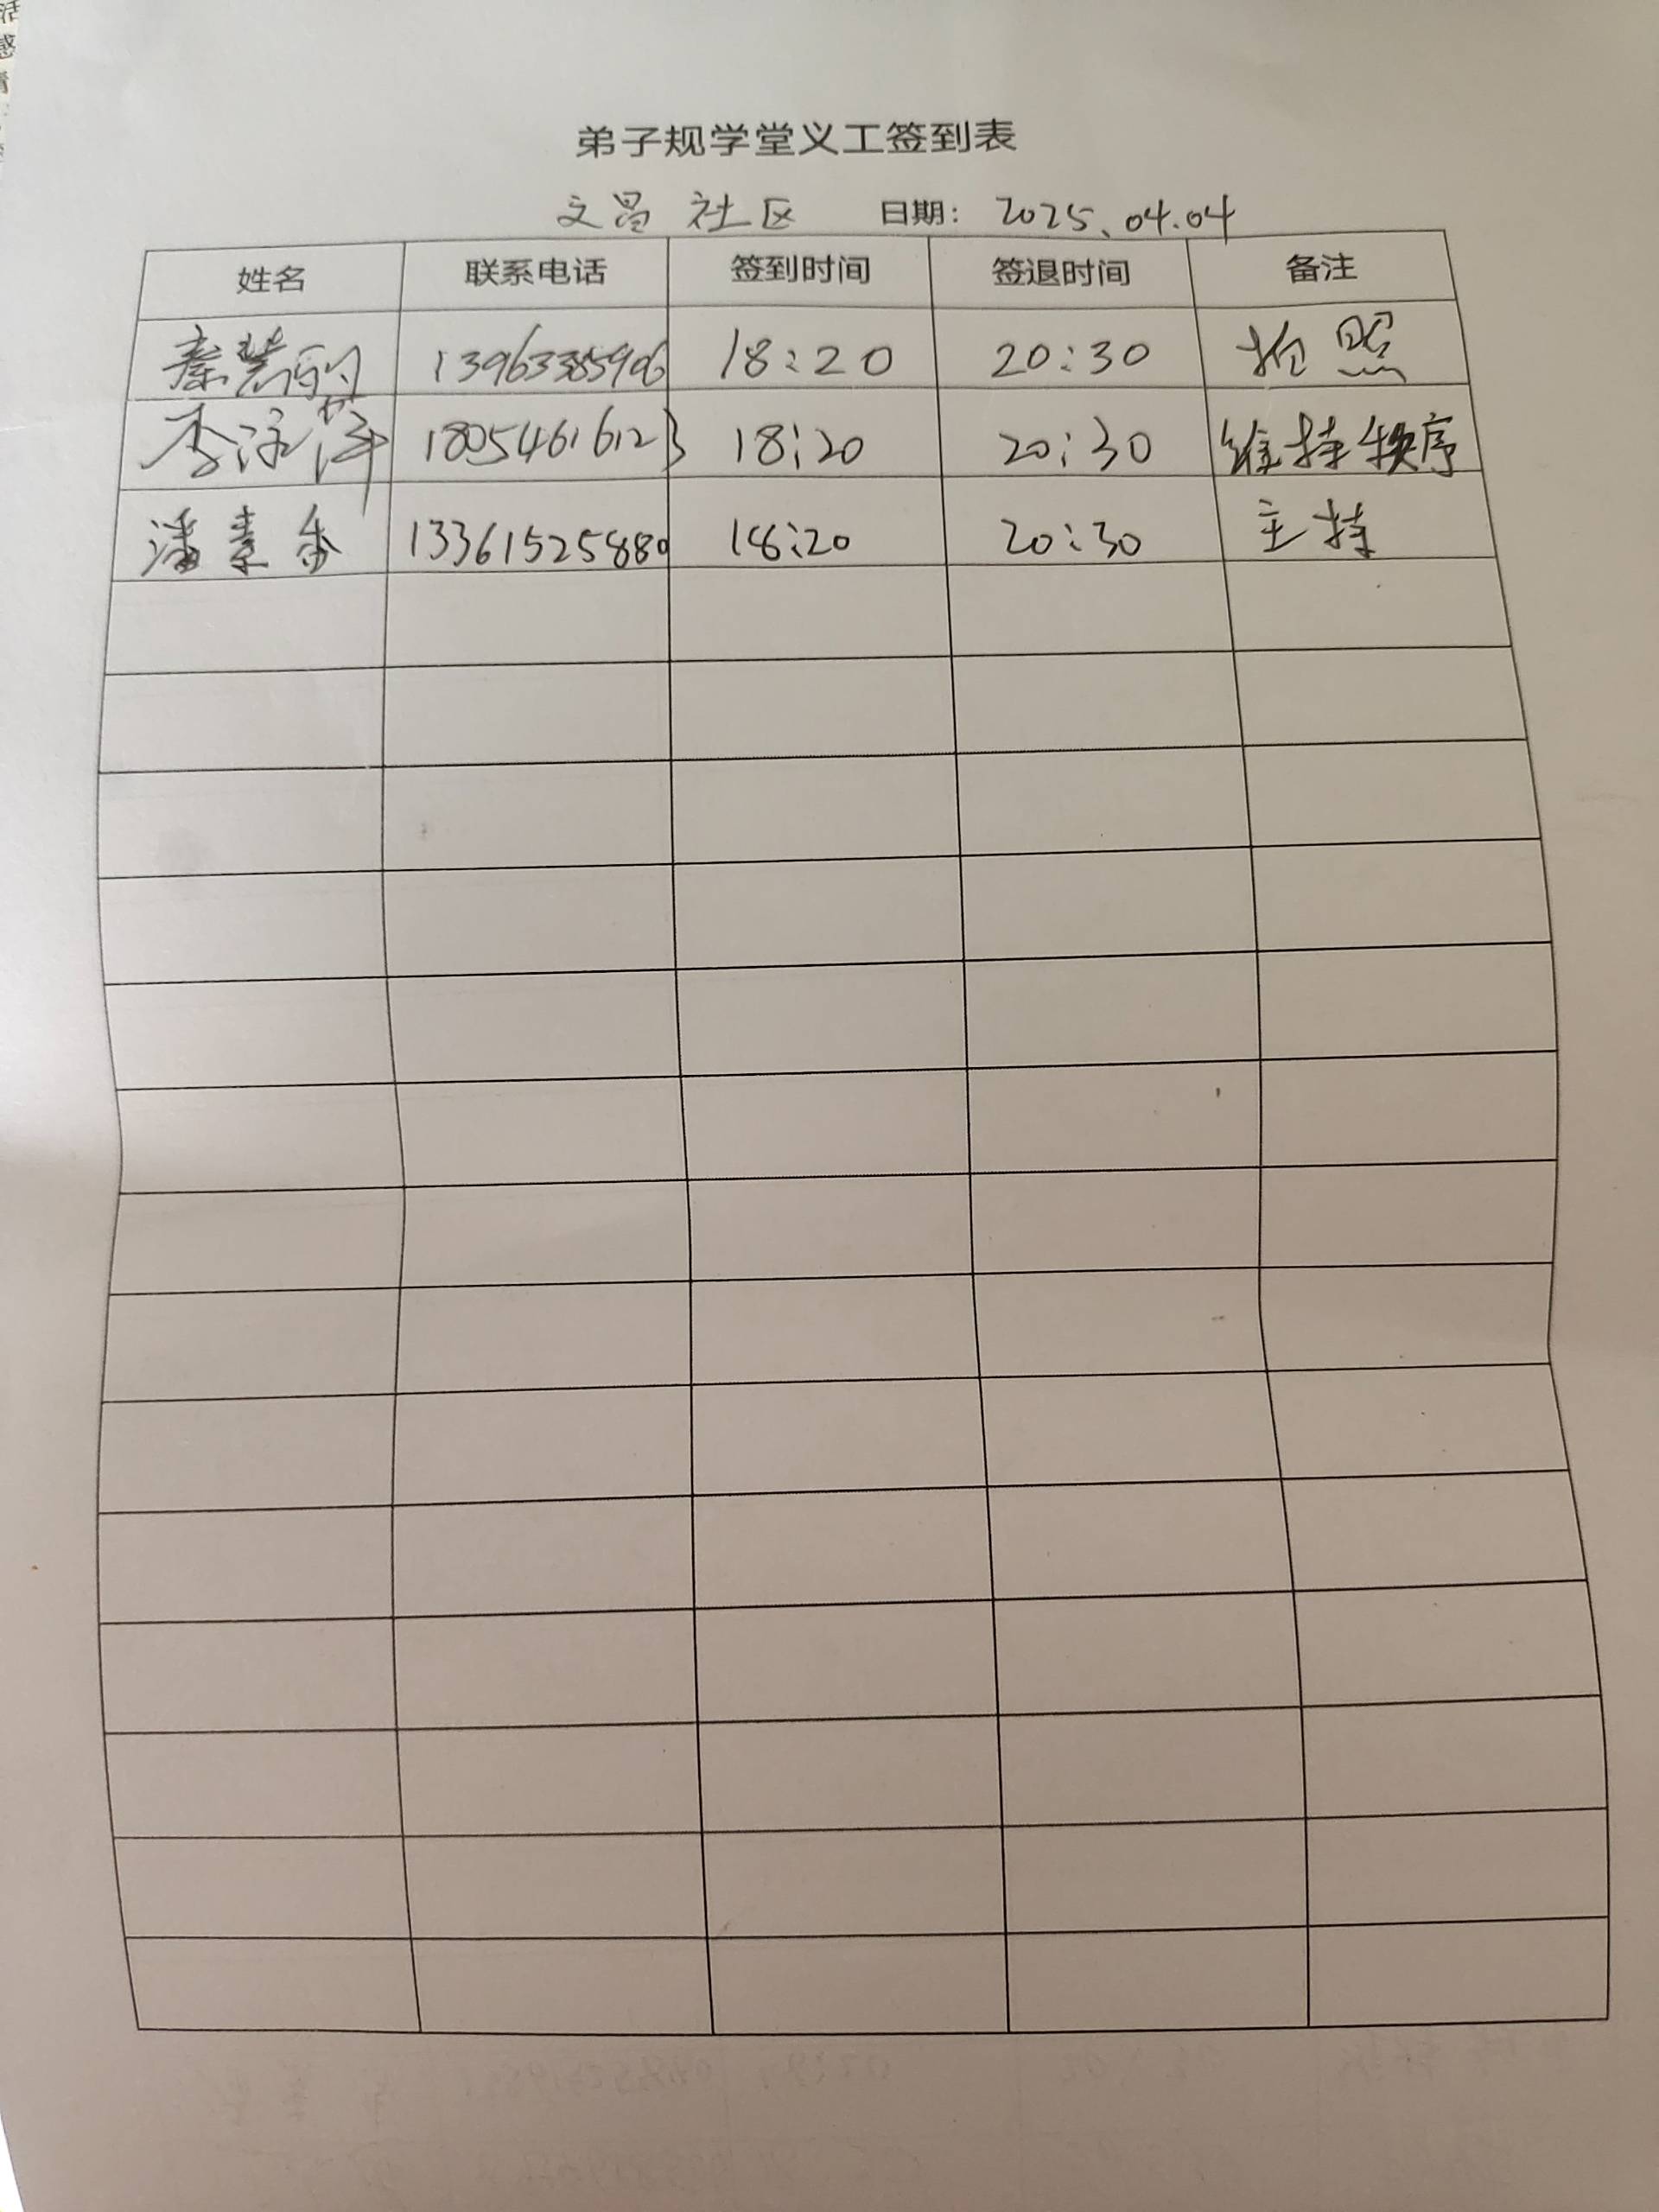 弟子规学堂义工签到表
文昌 社区 日期: 2025.04.04
姓名 联系电话 签到时间 签退时间 备注
秦慧丽 13963385906 18:20 20:30 拍照
李泳萍 18054616123 18:20 20:30 维持秩序
潘素香 13361525880 18:20 20:30 主持